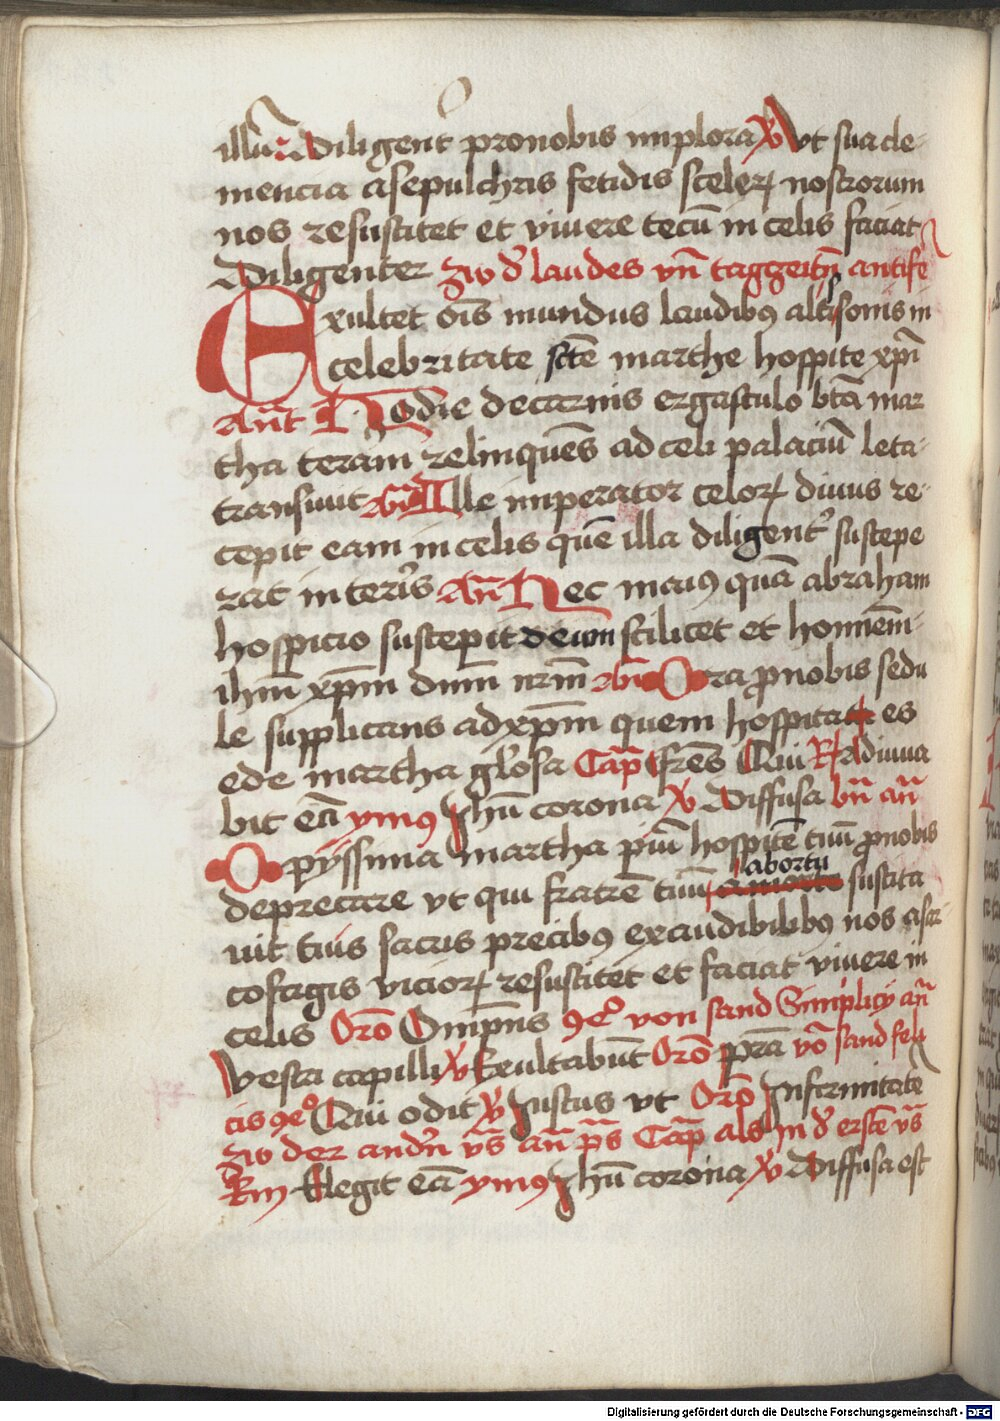 illū Diligent̛ pronobis implora ℣ Vt sua cle-
mencia a sepulchris fetidis sceleꝝ nostrorum
nos resuscitet et viuere tecū in celis faciat
Diligenter zw d̛ laudes vn̄ tagzeitn̄ antife
Exultet ōis mundus laudibꝯ altisonis in
celebritate scte marthe hospite xp̄i
Ant̄ Hodie de carnis ergastulo bt̄a mar
tha terām relinquēs ad celi palaciū leta-
transiuit An̄ Ille imperator celoꝝ diuus re-
cepit eam in celis quē illa diligent̛ suscepe
rat in terīs An̄ Nec maiꝯ quā abraham
hospicio suscepit deum scilicet et hominēm-
ihm̄ xp̄m dn̄m nr̄m An̄ Ora pnobis sedu
le supplicans ad xp̄m quem hospitata es
ede martha glo̅sa Cap̄ frēs Qui ℟ Adiuua
bit eā ymꝯ Jhū corona ℣ Diffusa bn̄ an̄
O pyssima martha piū hospitē tuū pnobis
deprecare vt qui fratrē tuū a morte abortu suscita
uit tuis sacris precibꝯ exaudibilibꝯ nos a sar
cofagis vicioꝝ resuscitet et faciat viuere in
celis Orō Omp̄ns ꝯe° von sand Simplicy an̄
Vestri capilli ℣ Exultabūt Orō pr̄a vō sand feli
cis ꝯe° Qui odit ℣ Justus vt Orō Infirmitatē
zw der andn̄ vs̄ an̄ ps̄ Cap̄ als in d̛ erste vs̄
℟m Elegit eā ymꝯ Jhū corona ℣ Diffusa est
Digitalisierung gefördert durch die Deutsche Forschungsgemeinschaft - DFG